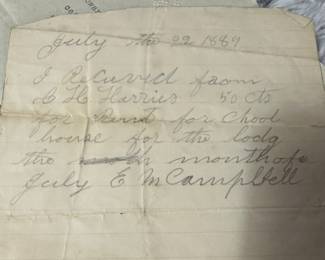 July the 22 1889
I Recieved from
C H Harries 50 cts
for Rent for Chool
house for the lodg
the month of
July E M Campbell